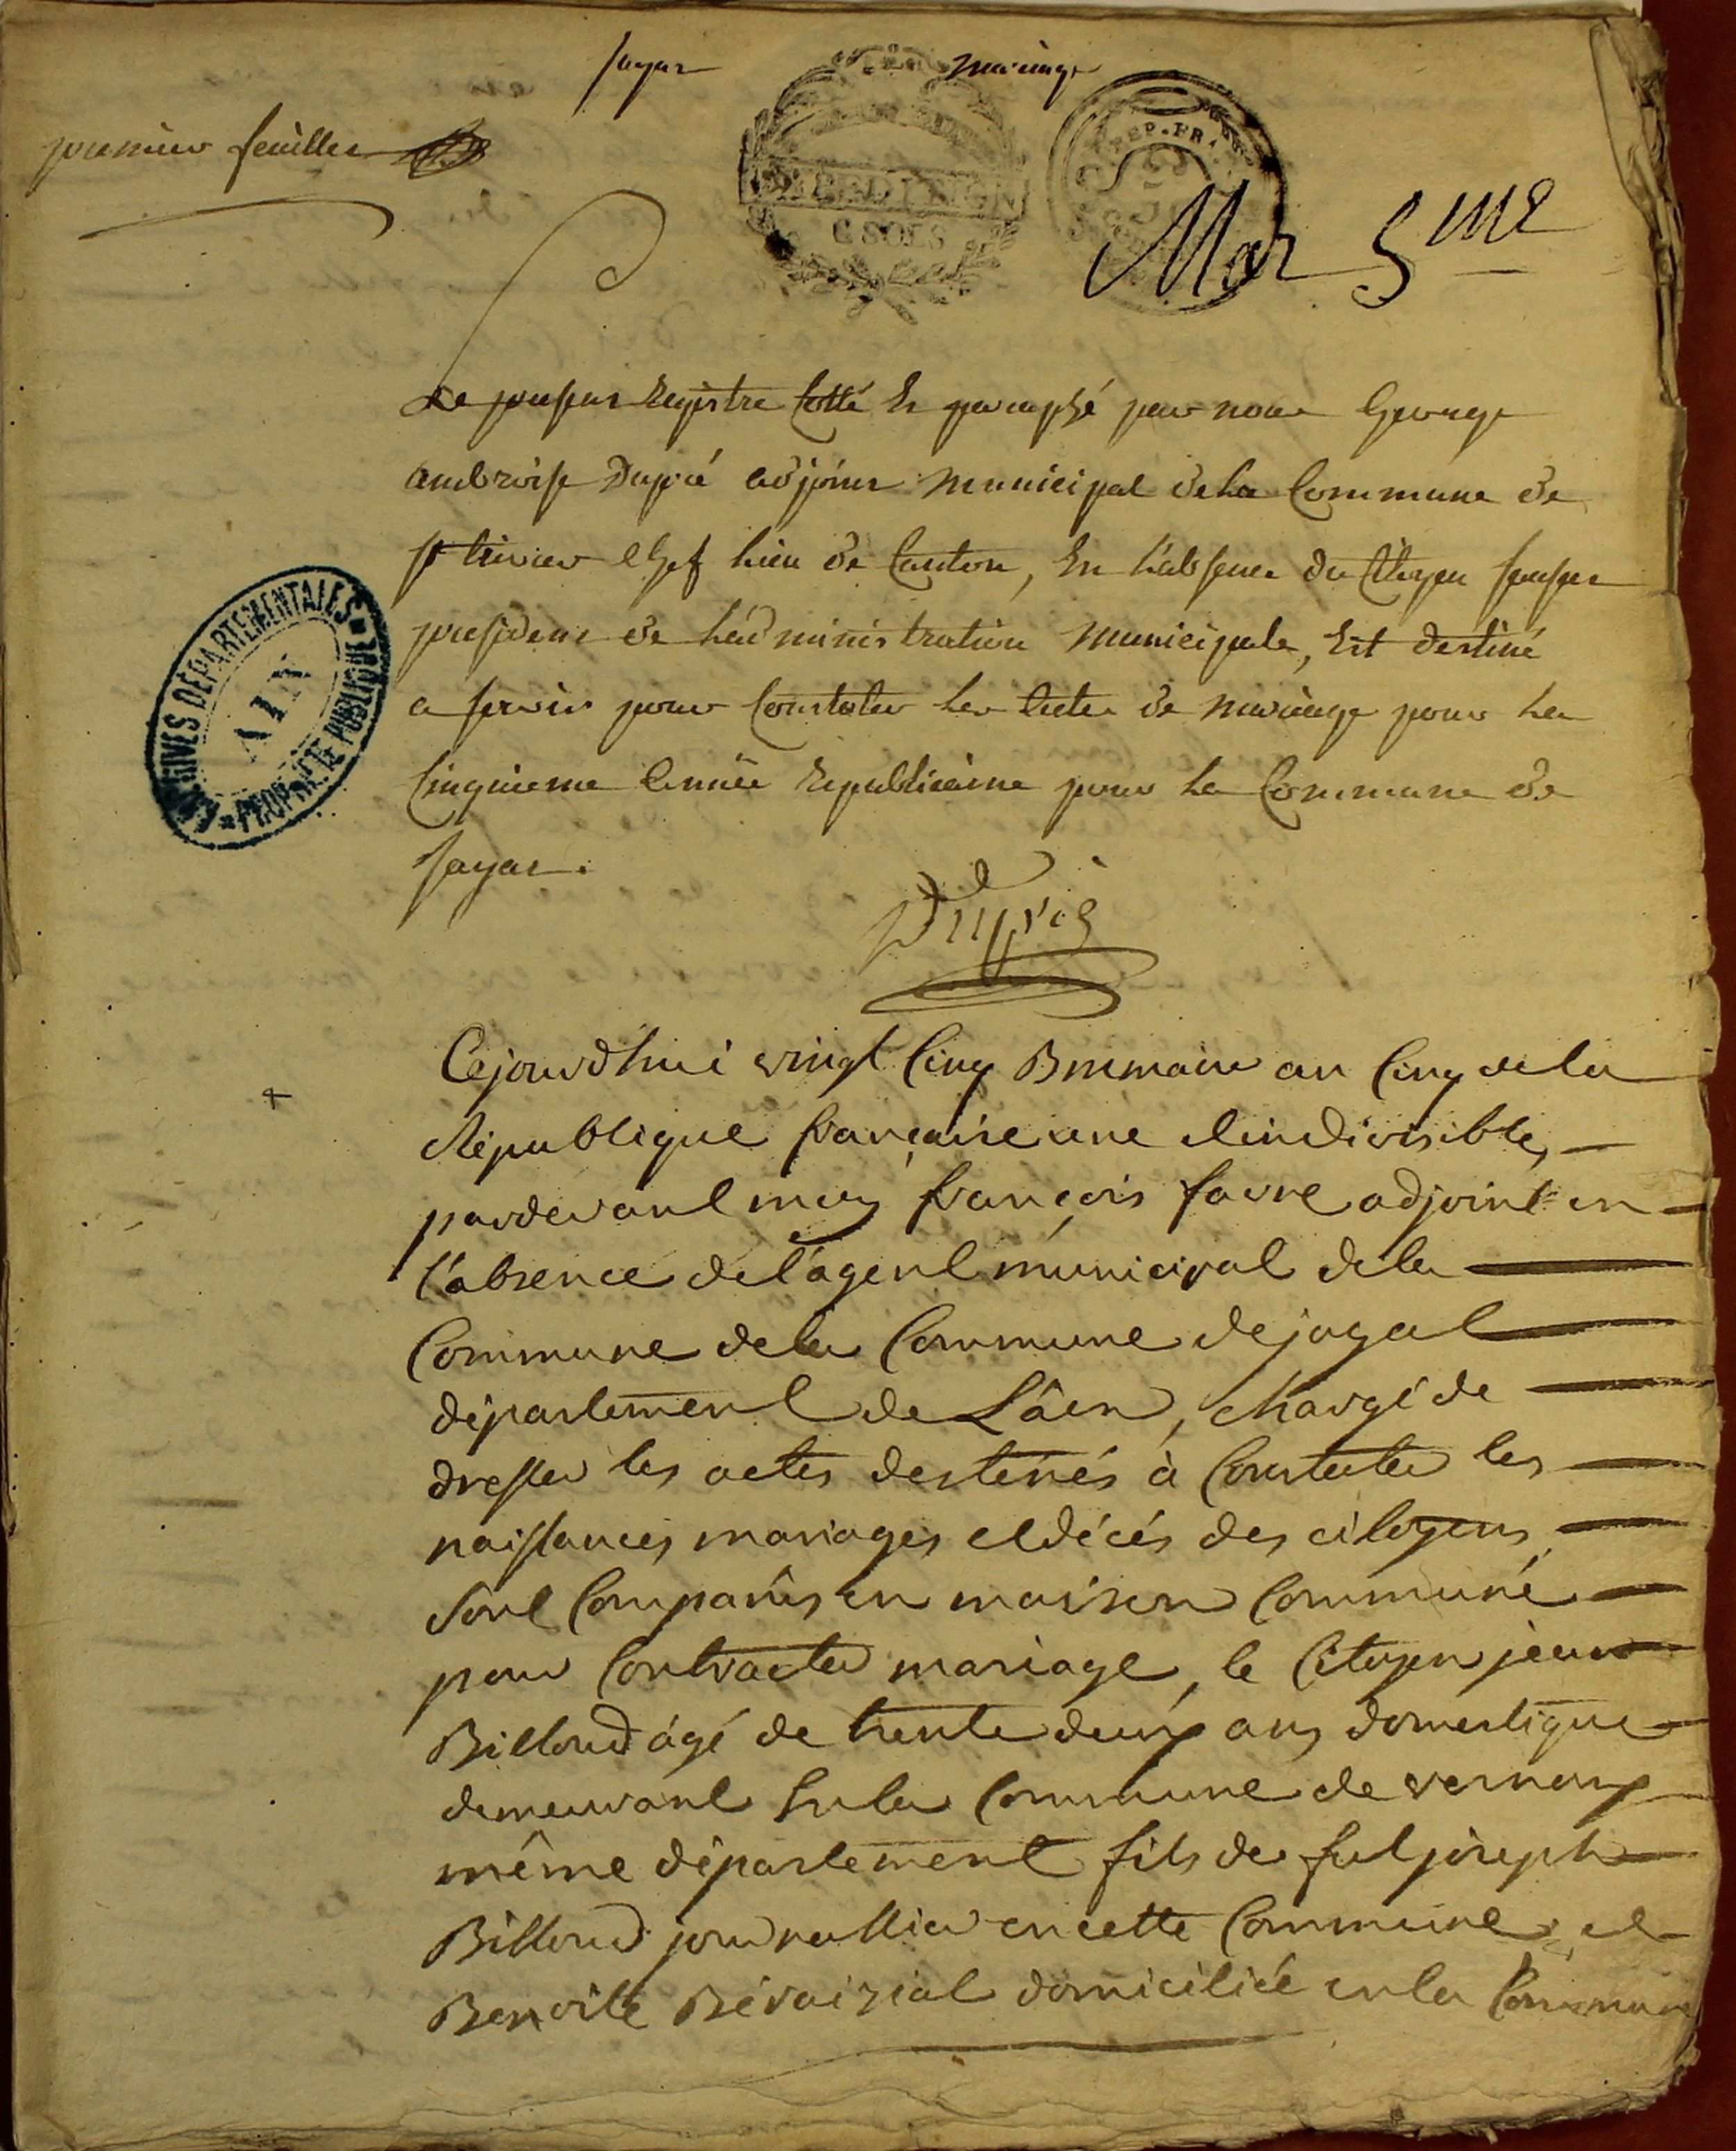 jayat mariage
premier feuillet
REP. FR.
6 SOLS
Mar 5me
ARCHIVES DÉPARTEMENTALES
AIN
PROPRIÉTÉ PUBLIQUE
Le present Registre Cotté Et paraphé par nous George
ambroise Dupré adjoint municipal de la Commune de
st trivier Chef lieu de Canton, En l'absence du Citoyen
president de l'administration municipale, Est destiné
a servir pour Constater les Actes de mariage pour la
Cinquieme Année Republicaine pour la Commune de
jayat.
Dupré
Cejourd'hui vingt Cinq Brumaire an Cinq de la
République française une et indivisible,
pardevant moy françois favre adjoint en
l'absence de l'agent municipal de la
Commune de la Commune de jayat
département de L'âin, chargé de
dresser les actes destinés à Constater les
naissances mariages et décés des citoyens
Sont Comparûs en maison Commune
pour Contracter mariage, le Citoyen jean
Billoud âgé de trente deux ans domestique
demeurant En la Commune de vernoux
même département fils de fut joseph
Billoud journallier en cette Commune et
Benoite domiciliée en la Commune